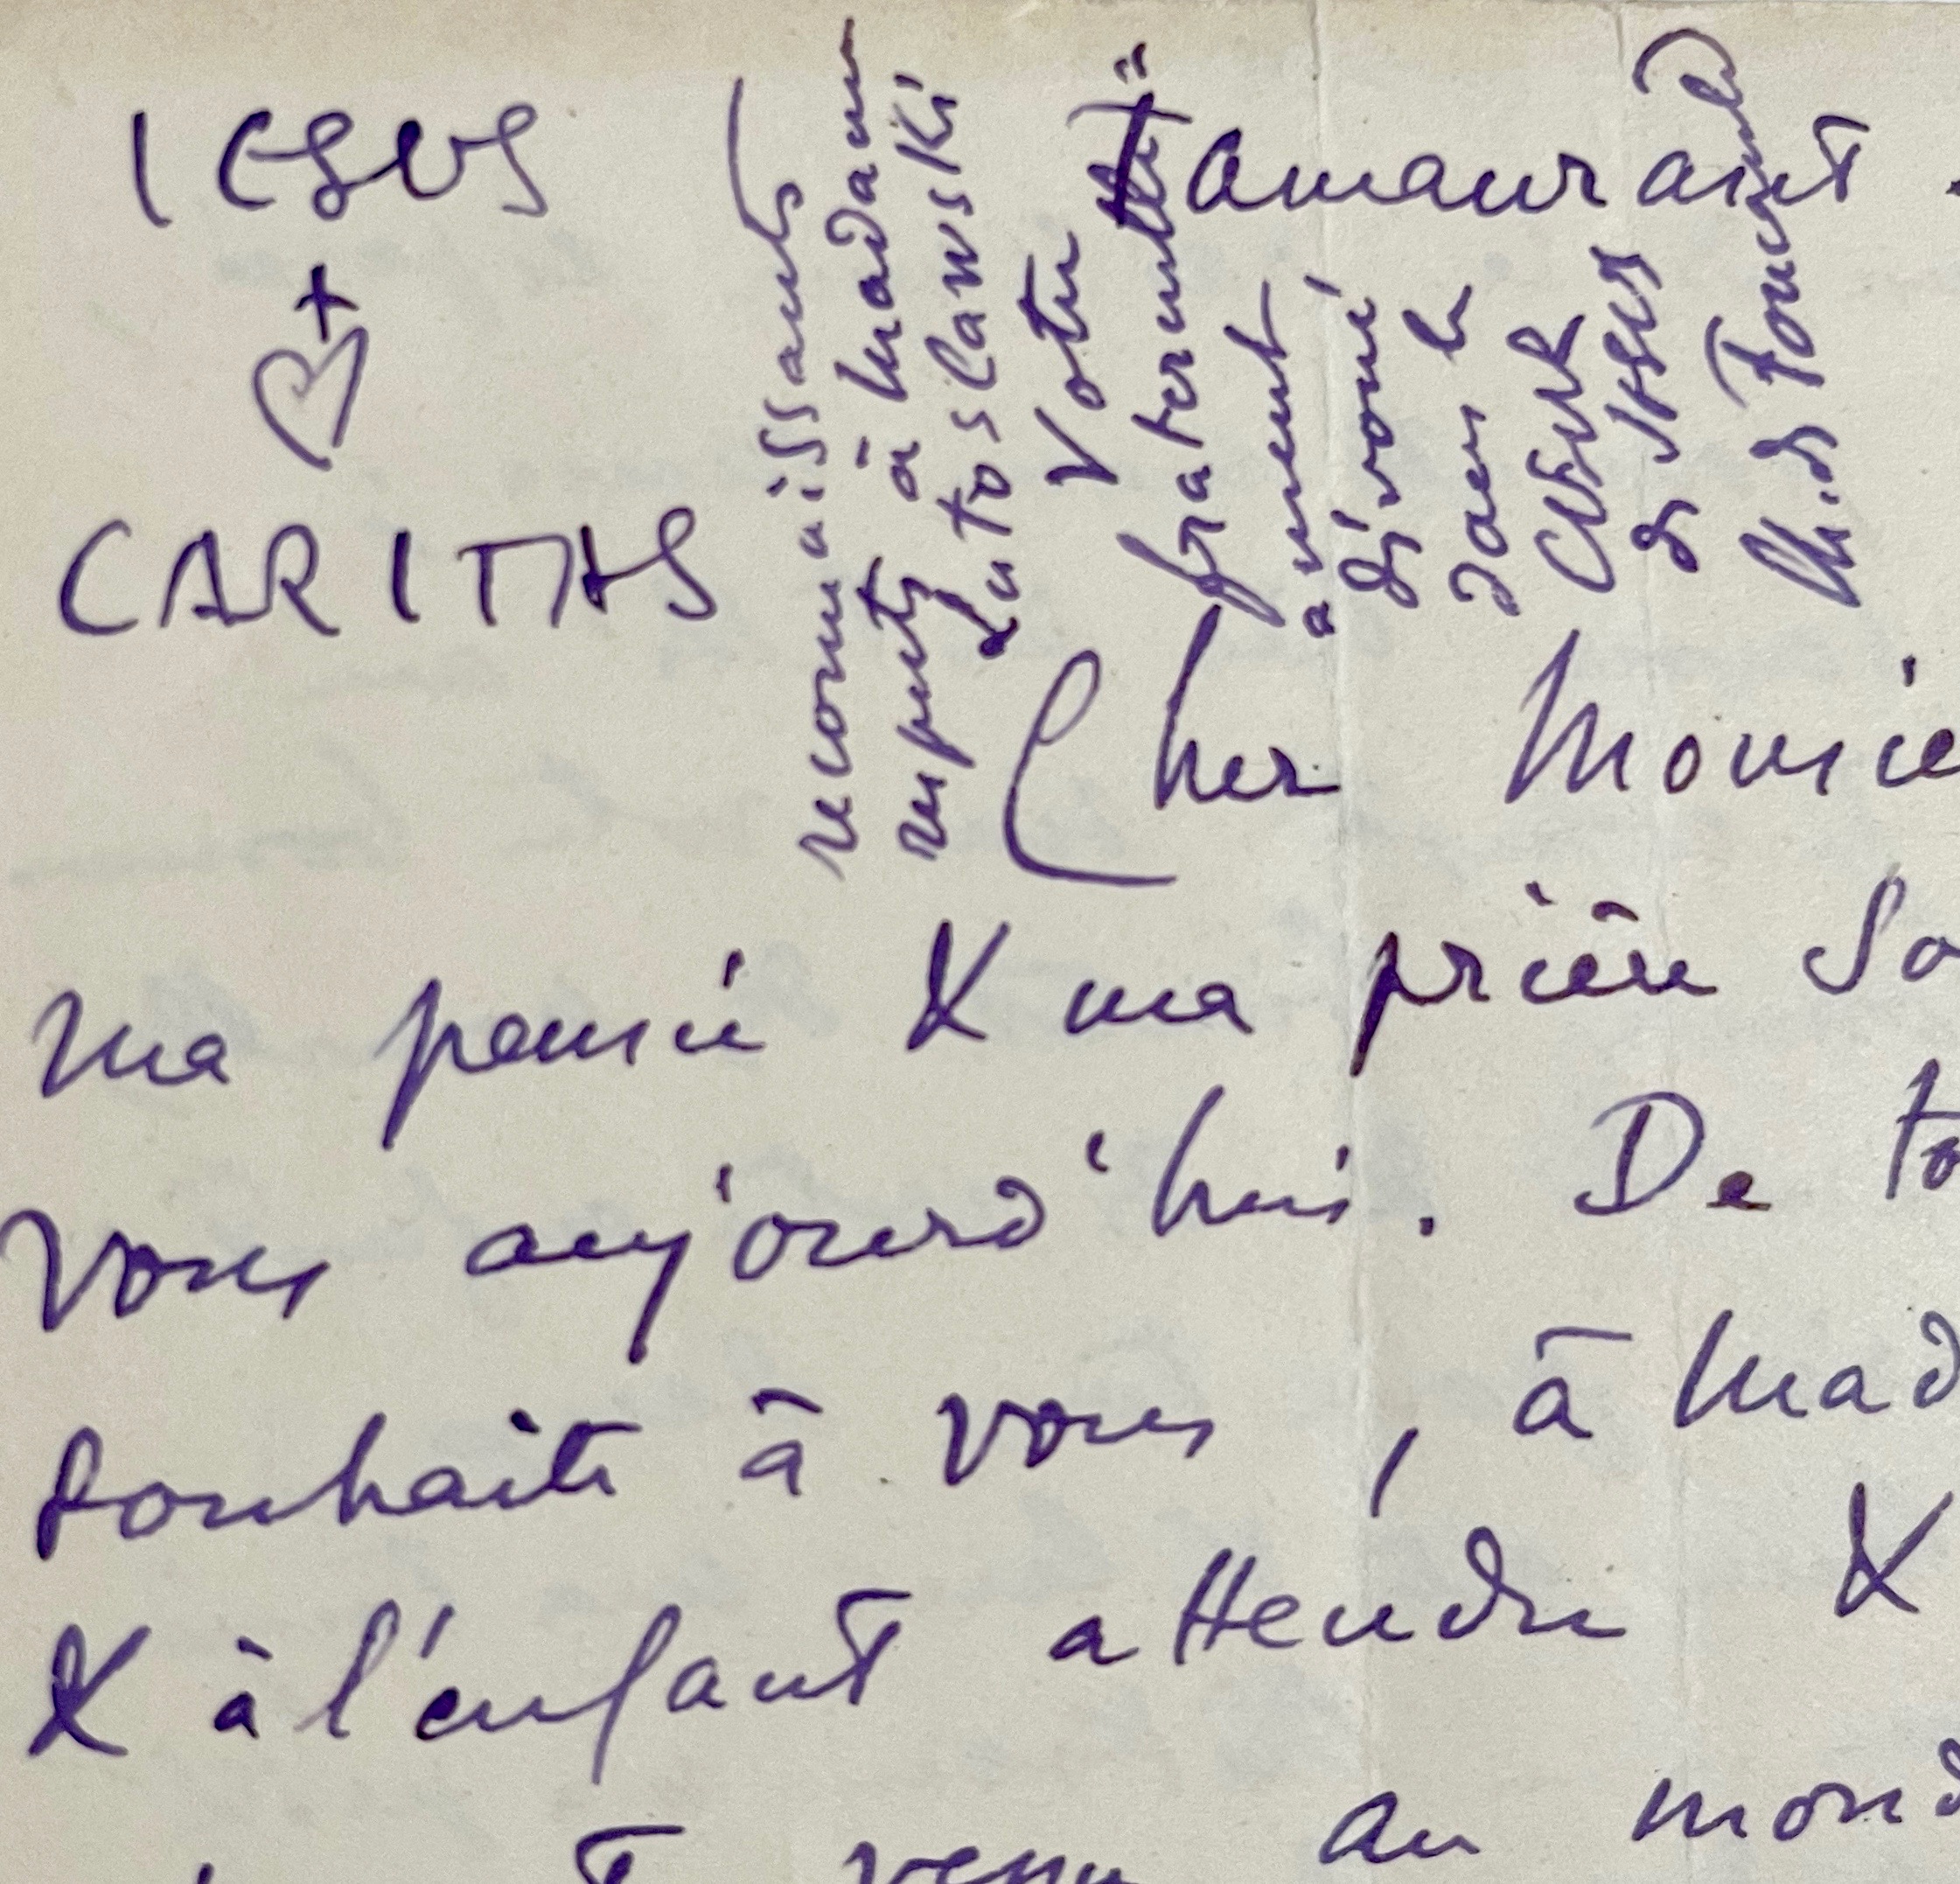 IESUS
CARITAS
Tamanrasset
reconnaissants
respects à Madame
Lutoslawski
Votre
fraternelle
ment
dévoué
dans le
CŒUR
de JESUS
Ch. de Foucauld
Cher Monsie
ma pensée & ma prière so
vous aujourd'hui. De to
souhaite à vous, à Mad
& à l'enfant attendu &
venu au mond